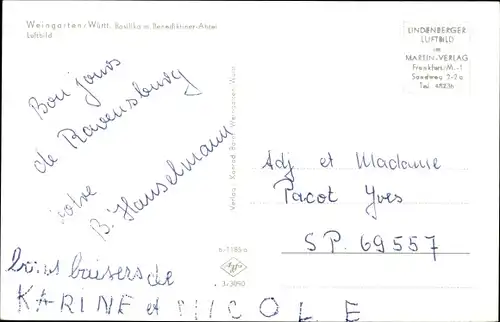 Weingarten/Württ. Basilika m. Benediktiner-Abtei
Luftbild
LINDENBERGER
LUFTBILD
im
MARTIN-VERLAG
Frankfurt/M.-1
Sandweg 2-2a
Tel. 45236
Bon jours
de Ravensburg
votre
B. Hanselmann
Verlag: Konrad Baur, Weingarten-Württ.
Adj et Madame
Pacot Yves
SP. 69557
Agfa
Bons baisers de
KARINE et NICOLE